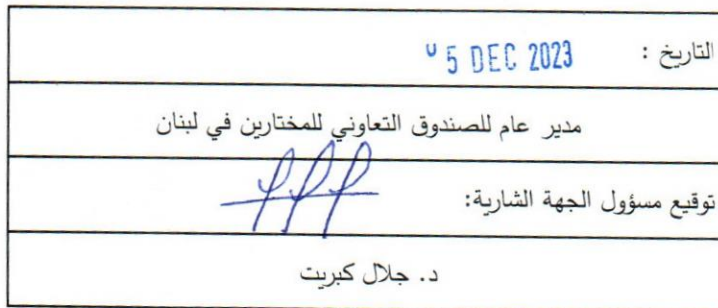 التاريخ : 05 DEC 2023
مدير عام للصندوق التعاوني للمختارين في لبنان
توقيع مسؤول الجهة الشارية:
د. جلال كبريت